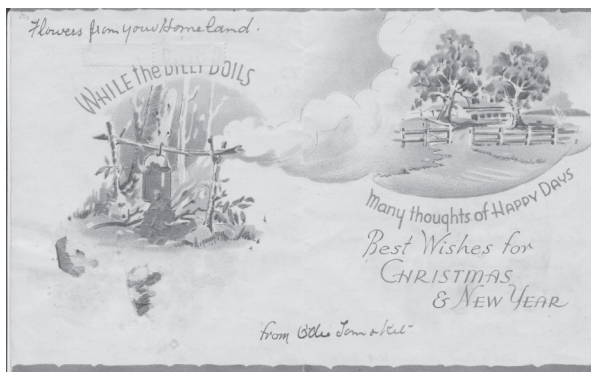 Flowers from your Homeland.
WHILE the BILLY BOILS
many thoughts of HAPPY DAYS
Best Wishes for
CHRISTMAS
& NEW YEAR
from